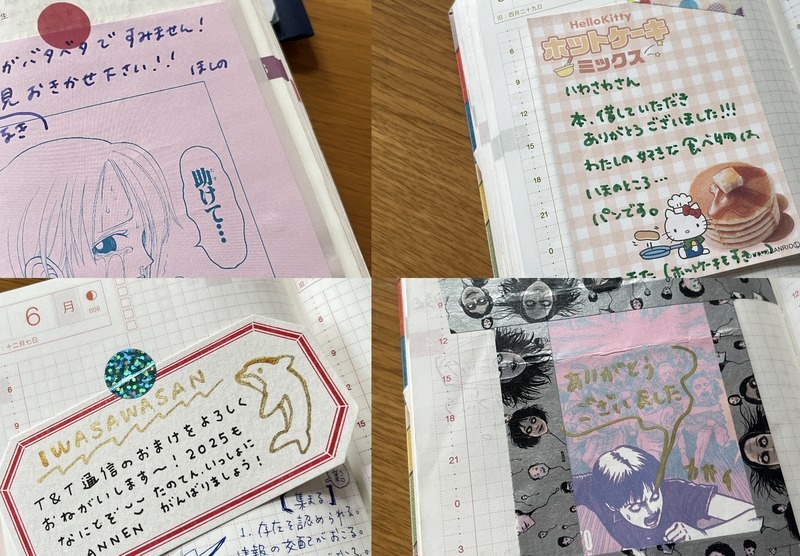 がバタベタで すみません!
見 おきかせ下さい!!
ほしの
助けて…
旧:四月二十九日
6
9
12
15
18
21
HelloKitty
ホットケーキ
ミックス
いわさわさん
本、借していただき
ありがとう ございました!!!
わたしの 好きな 食べ物は、
いまのところ…
パンです。
(ホットケーキもすき)
6
月
006
十二月七日
6
9
IWASAWASAN
T&T通信のおまけをよろしく
おねがいします〜! 2025も
なにとぞ
たのてん、いっしょに
がんばりましょう!
ANNEN
【集まる】
1. 存在を認められる。
9
12
15
18
21
0
3
ありがとう
ございました